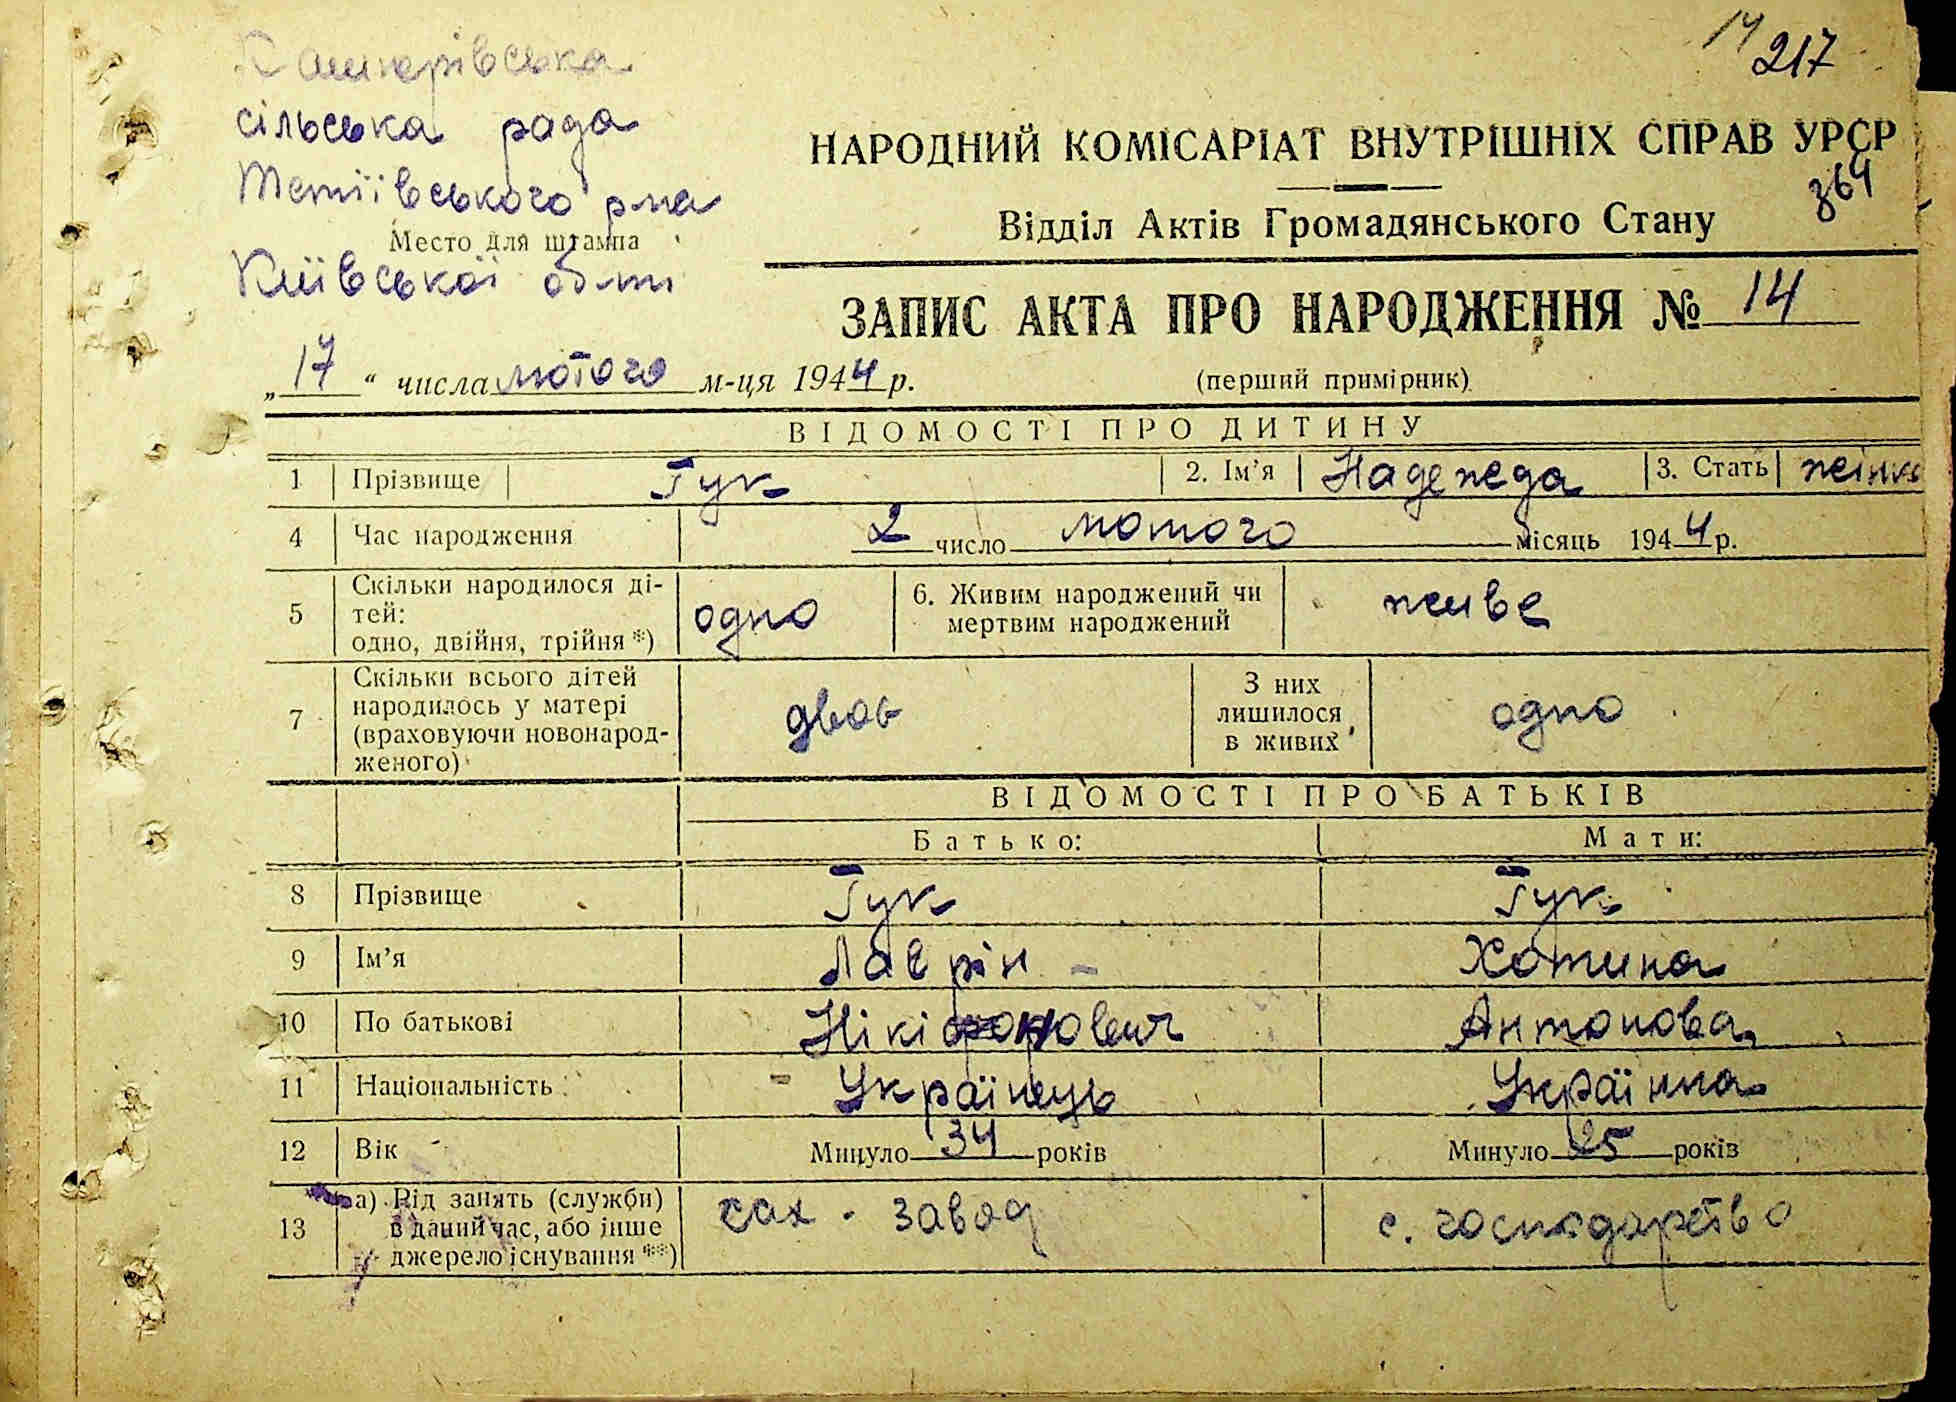 Кашперівська
сільська рада
Тетіївського р-на
Место для штампа
Київської обл-ти
14
217
364
НАРОДНИЙ КОМІСАРІАТ ВНУТРІШНІХ СПРАВ УРСР
Відділ Актів Громадянського Стану
ЗАПИС АКТА ПРО НАРОДЖЕННЯ № 14
„17“ числа лютого м-ця 1944 р.
(перший примірник)
ВІДОМОСТІ ПРО ДИТИНУ
1 Прізвище Гук 2. Ім’я Надежеда 3. Стать жінка
4 Час народження 2 число лютого місяць 1944 р.
5 Скільки народилося ді-
тей:
одно, двійня, трійня *) одно 6. Живим народжений чи
мертвим народжений живе
7 Скільки всього дітей
народилось у матері
(враховуючи новонарод-
женого) двоє З них
лишилося
в живих одно
ВІДОМОСТІ ПРО БАТЬКІВ
Батько: Мати:
8 Прізвище Гук Гук
9 Ім’я Лаврін Хотина
10 По батькові Нікіфорович Антонова
11 Національність Українець Українка
12 Вік Минуло 34 років Минуло 25 років
13 а) Рід занять (служби)
в даний час, або інше
джерело існування **) сах. завод с. господарство